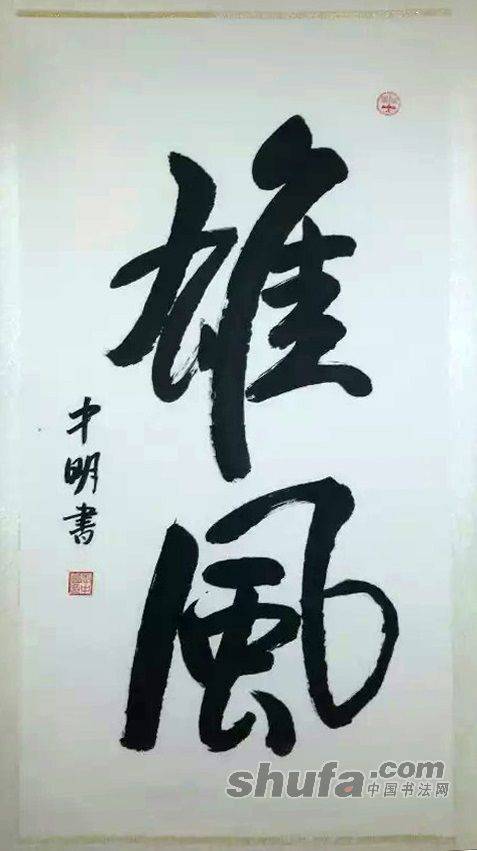 雄
風
才明書
shufa.com
中国书法网